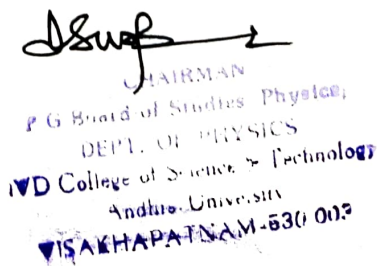 CHAIRMAN
P G Board of Studies Physics,
DEPT. OF PHYSICS
D College of Science & Technology
Andhra University
VISAKHAPATNAM-530 003